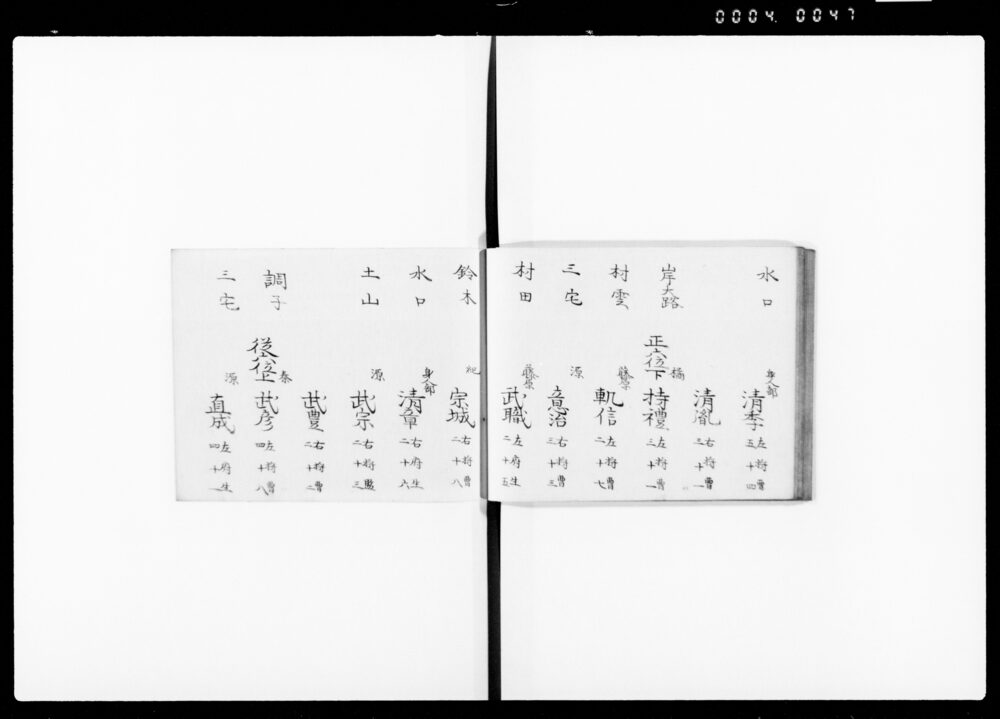 0004. 0047
水口 身人部 清李 左将曹 五十四
清胤 右将曹 三十一
岸大路 正六位下 橘 持禮 左将曹 三十一
村雲 藤原 軌信 左将曹 二十七
三宅 源 意治 右将曹 三十三
村田 藤原 武職 左府生 二十五
鈴木 紀 宗城 右将曹 二十八
水口 身人部 清章 右府生 二十六
土山 源 武宗 右将監 二十三
武豊 右将曹 二十二
調子 従六位上 秦 武彦 左将曹 四十八
三宅 源 直成 左府生 四十一